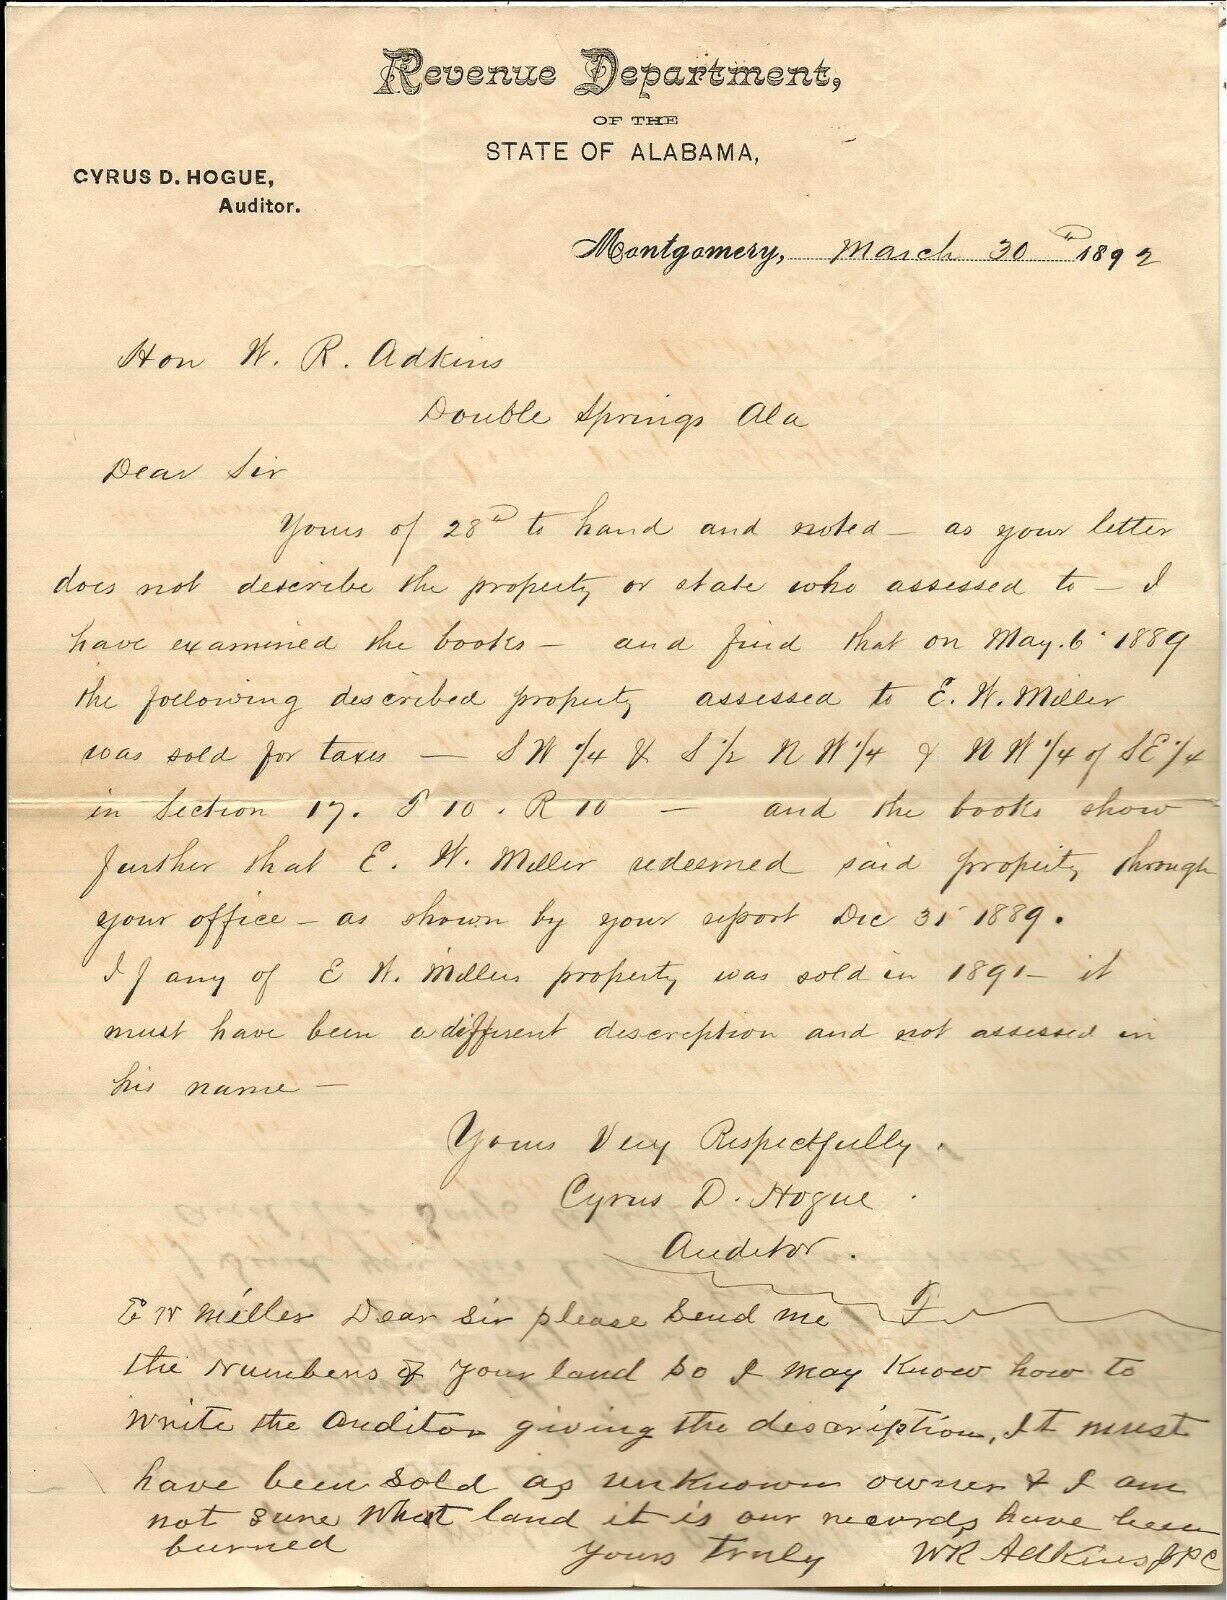 Revenue Department,
OF THE
STATE OF ALABAMA,
CYRUS D. HOGUE,
Auditor.
Montgomery, March 30th 1892
Hon W. R. Adkins
Double Springs Ala
Dear Sir
Yours of 28th to hand and noted — as your letter
does not describe the property or state who assessed to — I
have examined the books — and find that on May. 6 1889
the following described property assessed to E. W. Miller
was sold for taxes — S W 1/4 & S 1/2 N W 1/4 & N W 1/4 of S E 1/4
in Section 17. T 10. R 10 — and the books show
further that E. W. Miller redeemed said property through
your office — as shown by your report Dec 31 1889.
If any of E W. Millers property was sold in 1891 — it
must have been a different description and not assessed in
his name —
Yours Very Respectfully.
Cyrus D. Hogue.
Auditor.
E W Miller Dear Sir please send me
the Numbers of your land so I may Know how to
write the auditor giving the description, It must
have been sold as unknown owner & I am
not sure what land it is our records have been
burned
yours truly W R Adkins J P C